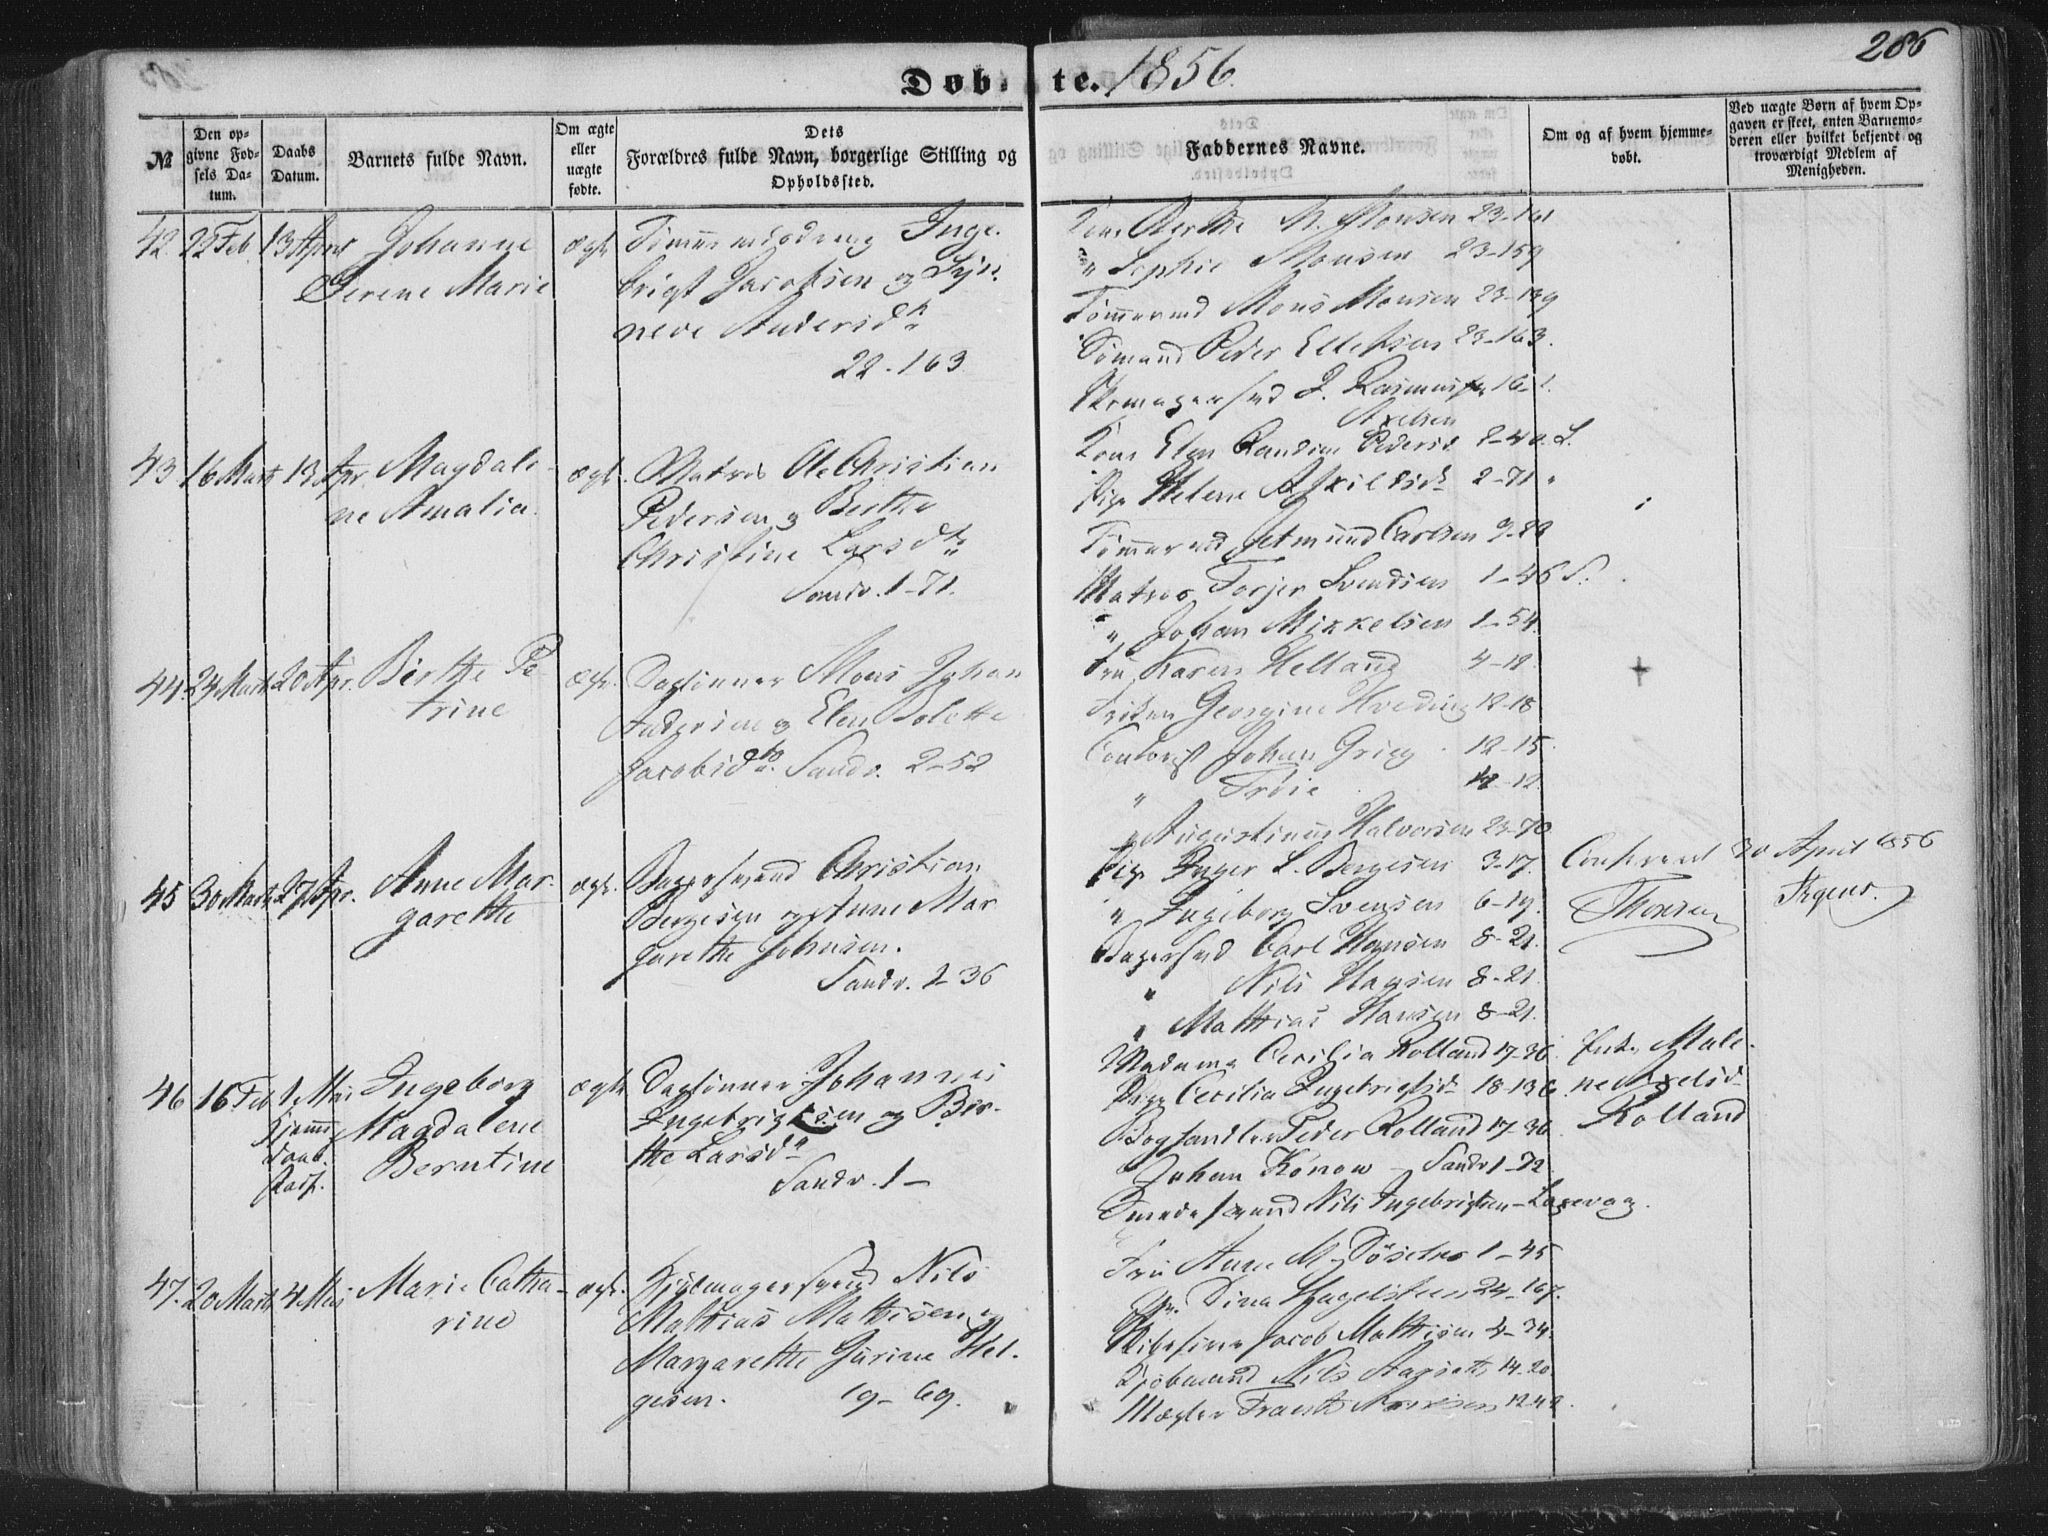 286
Døbte. 1856.
№
Den opgivne Fødsels Datum.
Daabs Datum.
Barnets fulde Navn.
Om ægte eller uægte fødte.
Dets Forældres fulde Navn, borgerlige Stilling og Opholdssted.
Faddernes Navne.
Om og af hvem hjemmedøbt.
Ved uægte Børn af hvem Opgaven er skeet, enten Barnemoderen eller hvilket bekjendt og troværdigt Medlem af Menigheden.
42 22 Feb 13 April Johanne
Serene Marie
ægte
Tømmermdsdreng Inge-
brigt Jacobsen og Syn-
neve Andersdtr
22-163
Kone Berthe M. Monsen 23-161
" Sophie Monsen 23-159
Tømmermd Mons Monsen 23-139
Sømand Peder Ellefsen 23-163.
Skomagersvd J. Rasmussen 16-1.
Axelsen
43 16 Marts 13 Apr. Magdale-
ne Amalia.
ægt.
Matros Ole Christian
Pedersen og Berthe
Christine Larsdtr
Sandv. 1-71.
Kone Elen Pedersd 2-40. S.
Pige Helene Askildsd 2-71 "
Tømmermd Jetmund Carlsen 9-29
Matros Torjer Svendsen 1-46 S.
" Johan Mikkelsen 1-54.
44. 24 Marts 20 Apr. Birthe Pe
trine
ægt.
Daglønner Mons Johan
Andersen og Elen Solette
Jacobsdtr. Sandv. 2-52
Fru Karen Helland 4-18.
Frøken Georgine Hveding 12-18
Contorist Johan Grieg 12-15.
" Trøie 12-12.
" Augustinus Halvorsen 23-70
45 30 Marts 27 Apr. Anne Mar-
garethe
ægt.
Bagersvend Christian
Børgesen og Anne Mar
garethe Johnsen.
Sandv. 2-36
Pige Inger L. Børgesen 3-17.
" Ingeborg Svensen 6-19.
Bagersvd Carl Hansen 8-21.
" Nils Hansen 8-21.
" Mathias Hansen 8-21.
Confereret 30 April 1856
46 16 Feb 1 Mai Ingeborg
Magdalene
Berntine
Hjemme
daab.
ægte
Daglønner Johannes
Ingebrigtsen og Ber-
the Larsdtr
Sandv. 1-
Madame Cecilia Rolland 17-36.
Pige Cecilia Ingebrigtsd 18-136.
Boghandler Peder Rolland 17-36
Johan Konow Sandv 1-72.
Smedesvend Nils Ingebrigtsen - Laxevaag.
Male-
ne Axelsd
Rolland
47. 20 Marts 4 Mai Marie Catha-
rine
ægt.
Hjulmagersvend Nils
Mathias Mathisen og
Margarethe Gurine Hel-
gesen. 19-69.
Fru Anne M. 1-45
Dina Hagelsteen 24-167.
Jacob Mathisen 4-34.
Kjøbmand Nils 14-20
Mægler 12-42.